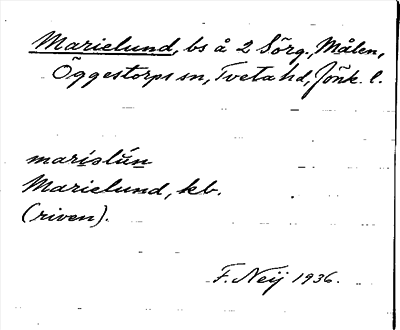 Marielund, bs å 2 Sörg., Målen,
Öggestorps sn, Tveta hd, Jönk. l.
marislún
Marielund, kb.
(riven).
F. Neij 1936.